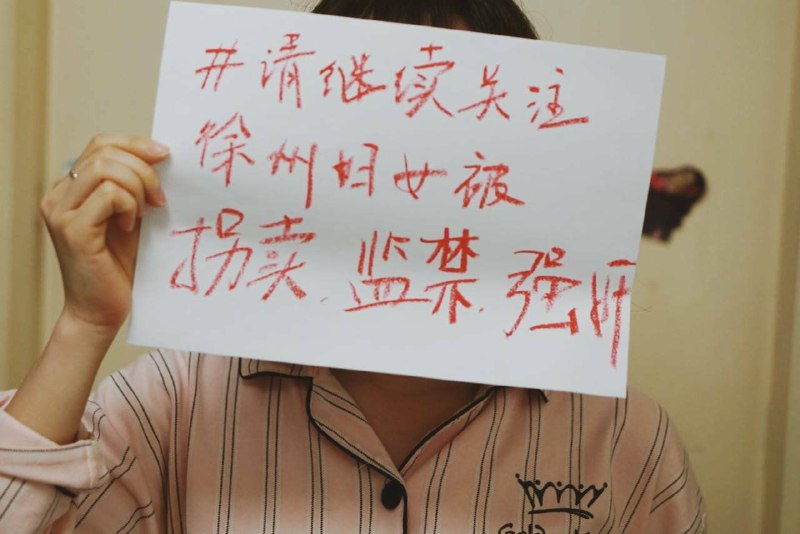 #请继续关注
徐州妇女被
拐卖、监禁、强奸